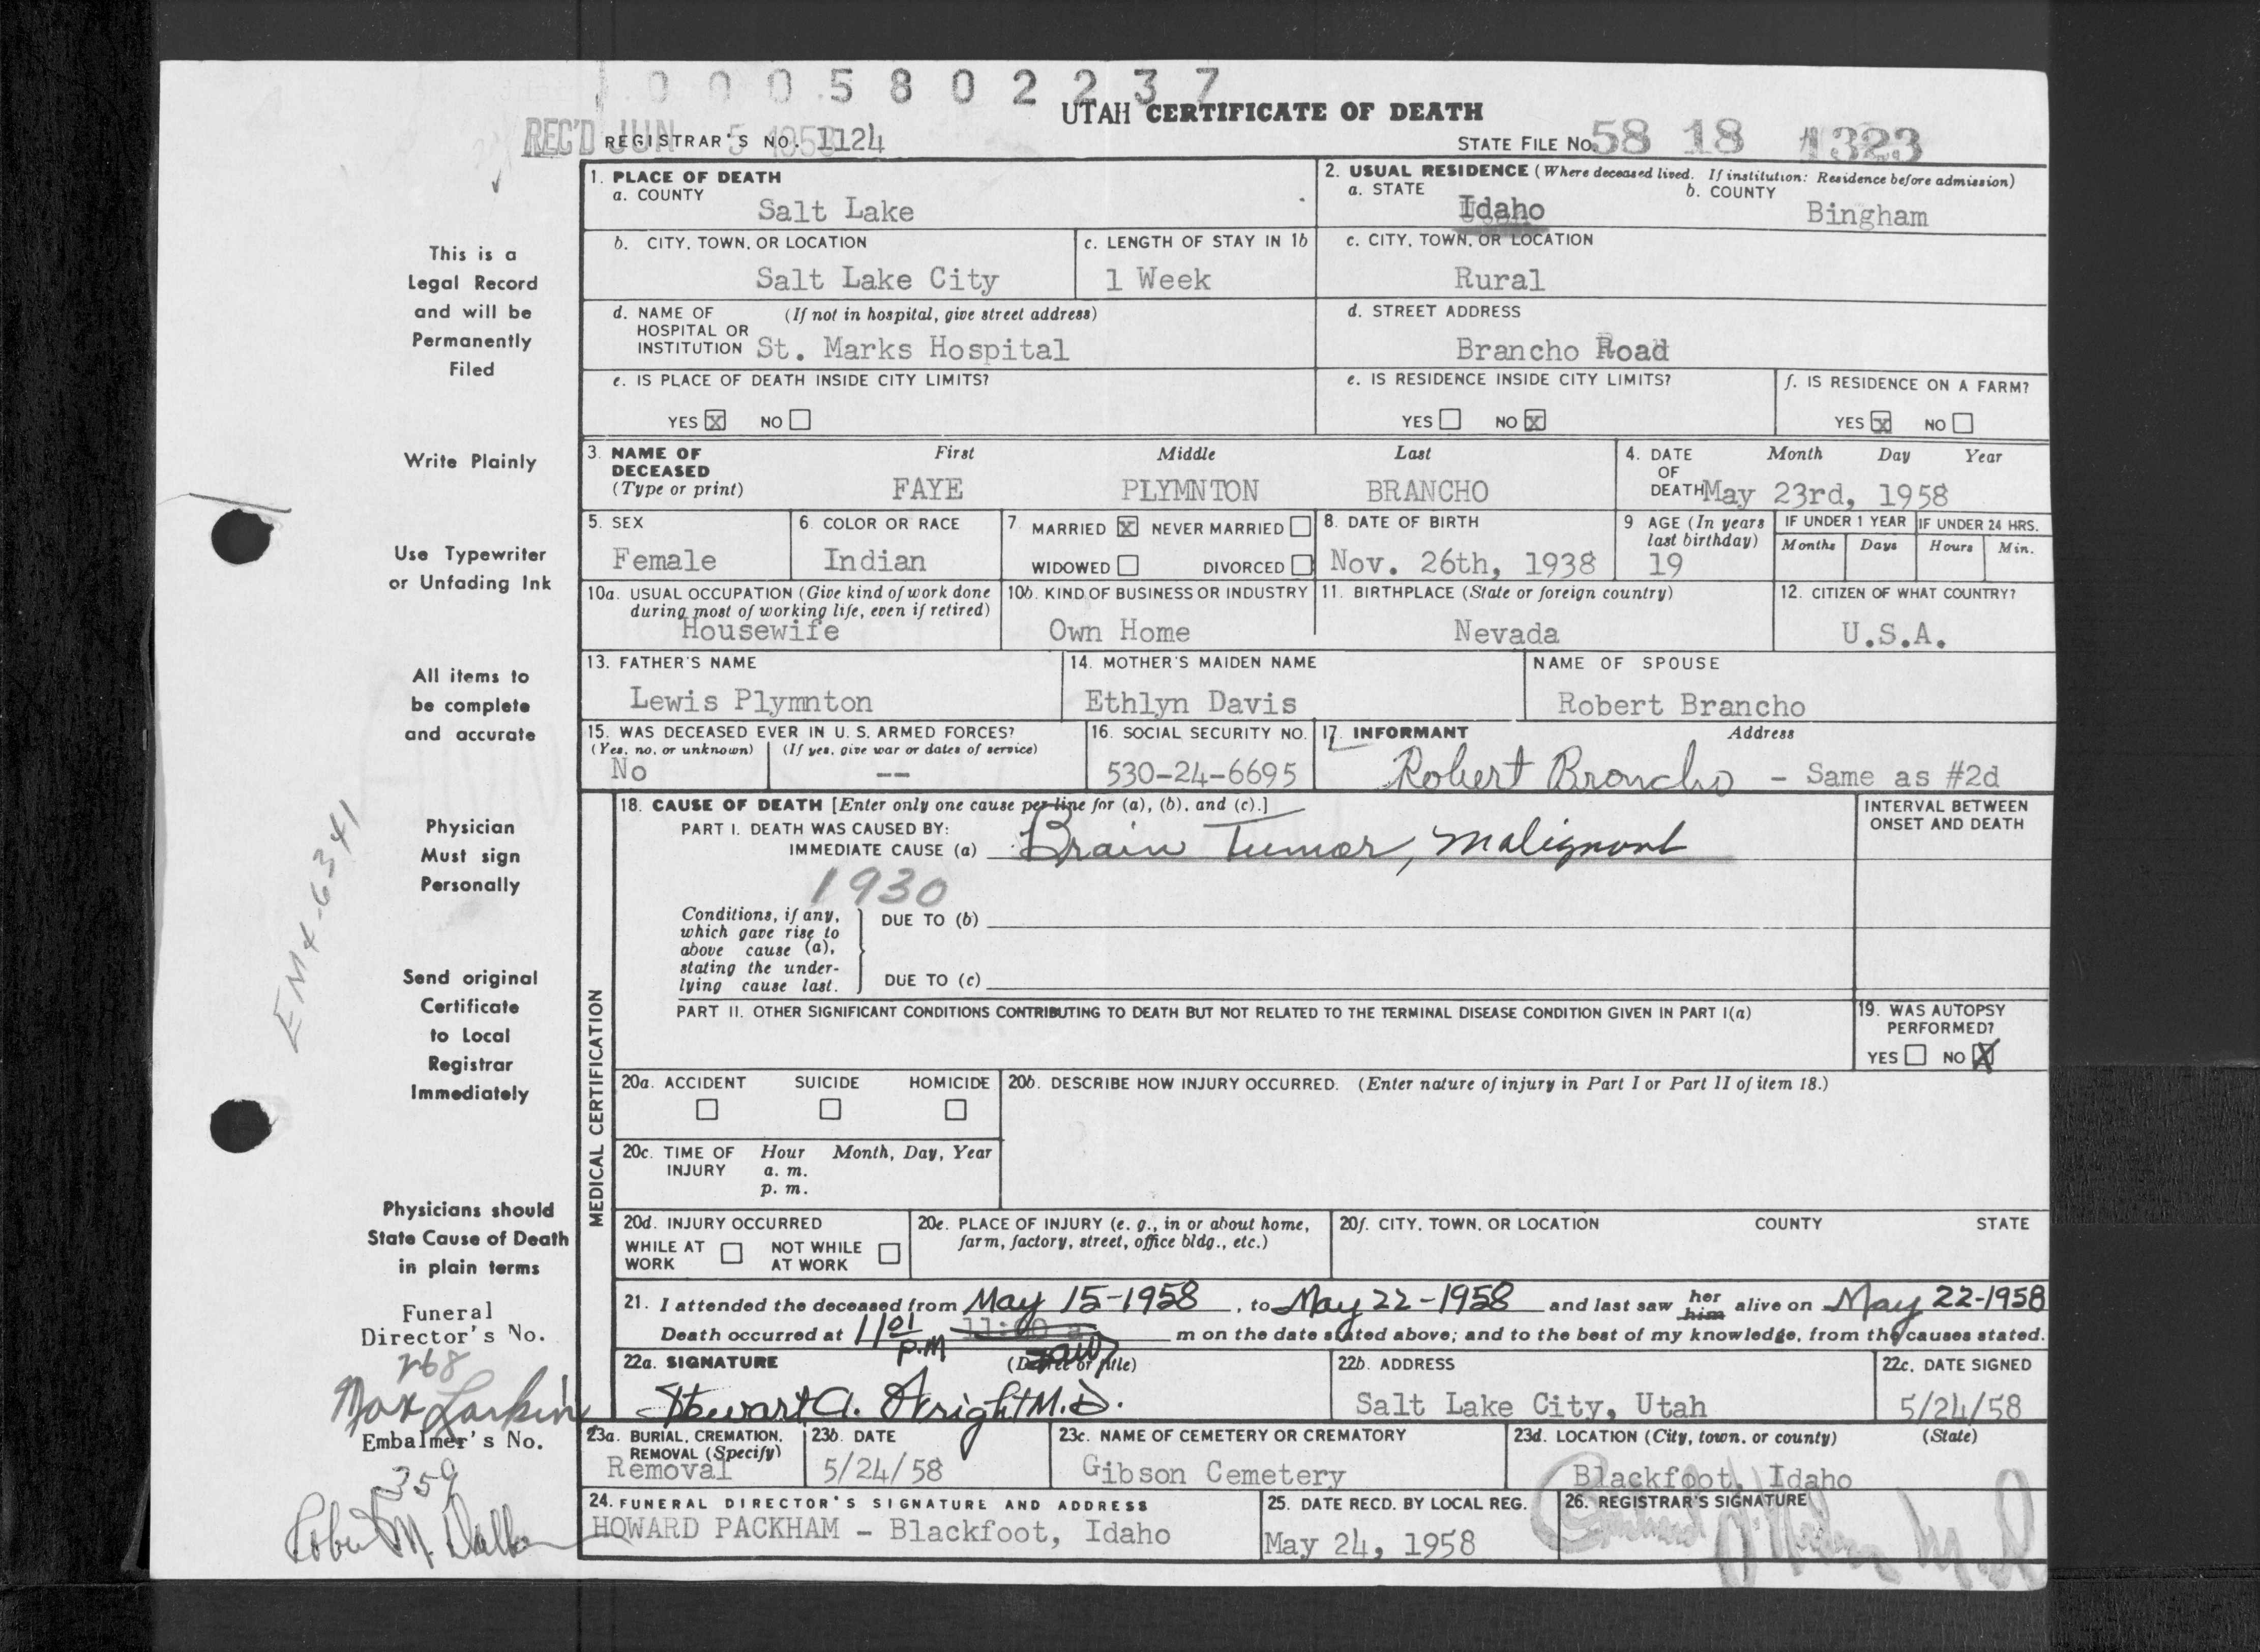 0 0 0 5 8 0 2 2 3 7
UTAH CERTIFICATE OF DEATH
REC'D JUN 5 1958
REGISTRAR'S NO. 1124
STATE FILE No. 58 18 1323
1. PLACE OF DEATH
a. COUNTY
Salt Lake
2. USUAL RESIDENCE (Where deceased lived. If institution: Residence before admission)
a. STATE Idaho
b. COUNTY Bingham
b. CITY, TOWN, OR LOCATION
Salt Lake City
c. LENGTH OF STAY IN 1b
1 Week
c. CITY, TOWN, OR LOCATION
Rural
d. NAME OF HOSPITAL OR INSTITUTION (If not in hospital, give street address)
St. Marks Hospital
d. STREET ADDRESS
Brancho Road
e. IS PLACE OF DEATH INSIDE CITY LIMITS?
YES X NO
e. IS RESIDENCE INSIDE CITY LIMITS?
YES NO X
f. IS RESIDENCE ON A FARM?
YES X NO
3. NAME OF DECEASED (Type or print)
First Middle Last
FAYE PLYMNTON BRANCHO
4. DATE OF DEATH Month Day Year
May 23rd, 1958
5. SEX
Female
6. COLOR OR RACE
Indian
7. MARRIED X NEVER MARRIED
WIDOWED DIVORCED
8. DATE OF BIRTH
Nov. 26th, 1938
9 AGE (In years last birthday)
19
IF UNDER 1 YEAR
Months Days
IF UNDER 24 HRS.
Hours Min.
10a. USUAL OCCUPATION (Give kind of work done during most of working life, even if retired)
Housewife
10b. KIND OF BUSINESS OR INDUSTRY
Own Home
11. BIRTHPLACE (State or foreign country)
Nevada
12. CITIZEN OF WHAT COUNTRY?
U.S.A.
13. FATHER'S NAME
Lewis Plymnton
14. MOTHER'S MAIDEN NAME
Ethlyn Davis
NAME OF SPOUSE
Robert Brancho
15. WAS DECEASED EVER IN U. S. ARMED FORCES?
(Yes, no, or unknown) (If yes, give war or dates of service)
No --
16. SOCIAL SECURITY NO.
530-24-6695
17. INFORMANT Address
Robert Broncho - Same as #2d
MEDICAL CERTIFICATION
18. CAUSE OF DEATH [Enter only one cause per line for (a), (b), and (c).]
INTERVAL BETWEEN ONSET AND DEATH
PART I. DEATH WAS CAUSED BY:
IMMEDIATE CAUSE (a) Brain Tumor, Malignant
1930
Conditions, if any, which gave rise to above cause (a), stating the underlying cause last.
DUE TO (b)
DUE TO (c)
PART II. OTHER SIGNIFICANT CONDITIONS CONTRIBUTING TO DEATH BUT NOT RELATED TO THE TERMINAL DISEASE CONDITION GIVEN IN PART I(a)
19. WAS AUTOPSY PERFORMED?
YES NO X
20a. ACCIDENT SUICIDE HOMICIDE
20b. DESCRIBE HOW INJURY OCCURRED. (Enter nature of injury in Part I or Part II of item 18.)
20c. TIME OF INJURY Hour Month, Day, Year
a. m.
p. m.
20d. INJURY OCCURRED
WHILE AT WORK NOT WHILE AT WORK
20e. PLACE OF INJURY (e. g., in or about home, farm, factory, street, office bldg., etc.)
20f. CITY, TOWN, OR LOCATION COUNTY STATE
21. I attended the deceased from May 15-1958, to May 22-1958 and last saw her him alive on May 22-1958
Death occurred at 1101 P.M 11:00 a m on the date stated above; and to the best of my knowledge, from the causes stated.
22a. SIGNATURE (Degree or title)
Stewart A. Wright M.D.
22b. ADDRESS
Salt Lake City, Utah
22c. DATE SIGNED
5/24/58
23a. BURIAL, CREMATION, REMOVAL (Specify)
Removal
23b. DATE
5/24/58
23c. NAME OF CEMETERY OR CREMATORY
Gibson Cemetery
23d. LOCATION (City, town, or county) (State)
Blackfoot, Idaho
24. FUNERAL DIRECTOR'S SIGNATURE AND ADDRESS
HOWARD PACKHAM - Blackfoot, Idaho
25. DATE RECD. BY LOCAL REG.
May 24, 1958
26. REGISTRAR'S SIGNATURE
M.D.
This is a
Legal Record
and will be
Permanently
Filed
Write Plainly
Use Typewriter
or Unfading Ink
All items to
be complete
and accurate
Physician
Must sign
Personally
Send original
Certificate
to Local
Registrar
Immediately
Physicians should
State Cause of Death
in plain terms
Funeral
Director's No.
268
Max Larkin
Embalmer's No.
359
Robert M.